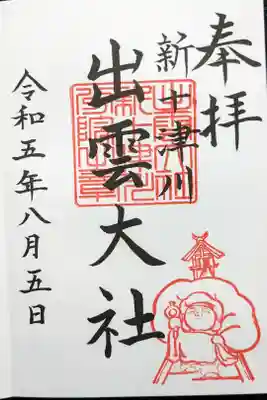 奉拝
新十津川
出雲大社
令和五年八月五日